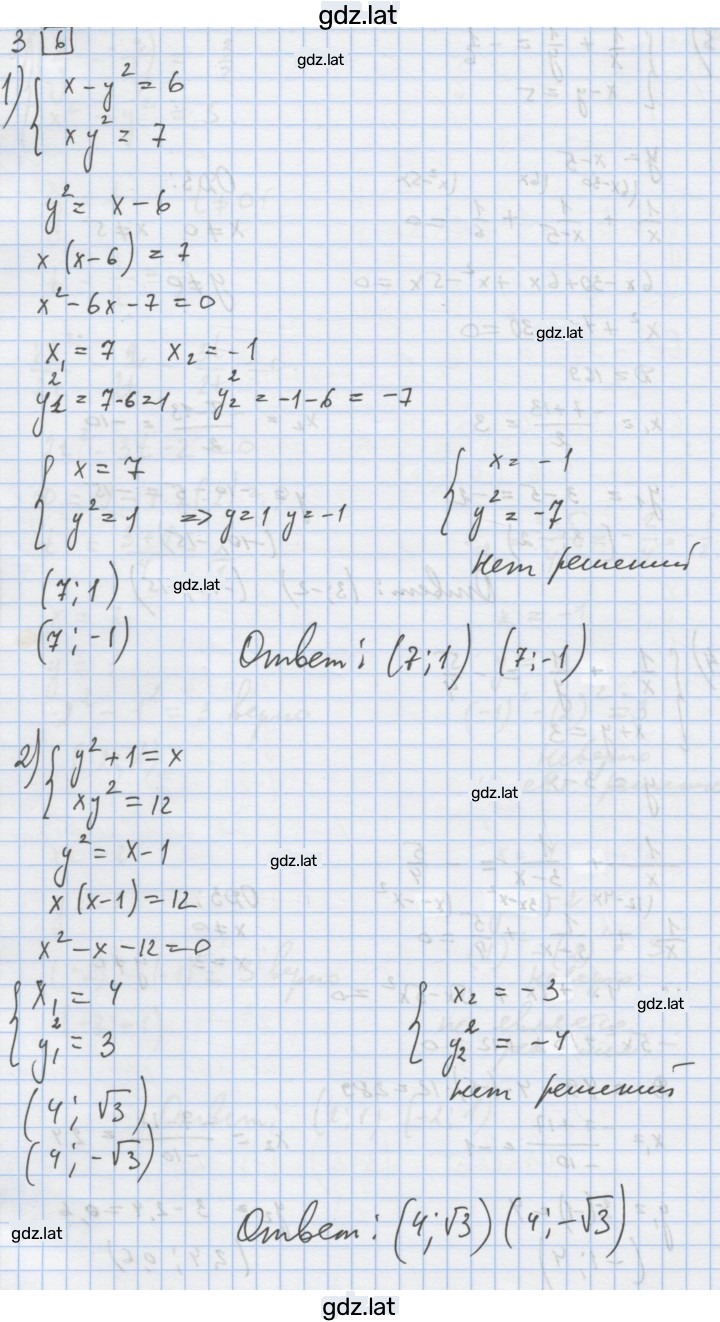 gdz.lat
3 6
gdz.lat
1) { x - y² = 6
xy² = 7
y² = x - 6
x (x - 6) = 7
x² - 6x - 7 = 0
gdz.lat
x₁ = 7 x₂ = -1
y₁² = 7-6=1 y₂² = -1-6 = -7
{ x = 7 { x = -1
y² = 1 => y=1 y=-1 y² = -7
нет решений
(7; 1) gdz.lat
(7; -1)
Ответ: (7; 1) (7; -1)
2) { y² + 1 = x
xy² = 12
gdz.lat
y² = x - 1
gdz.lat
x (x-1) = 12
x² - x - 12 = 0
{ x₁ = 4 { x₂ = -3
gdz.lat
y₁² = 3 y₂² = -4
нет решений
(4; √3)
(4; -√3)
Ответ: (4; √3) (4; -√3)
gdz.lat
gdz.lat